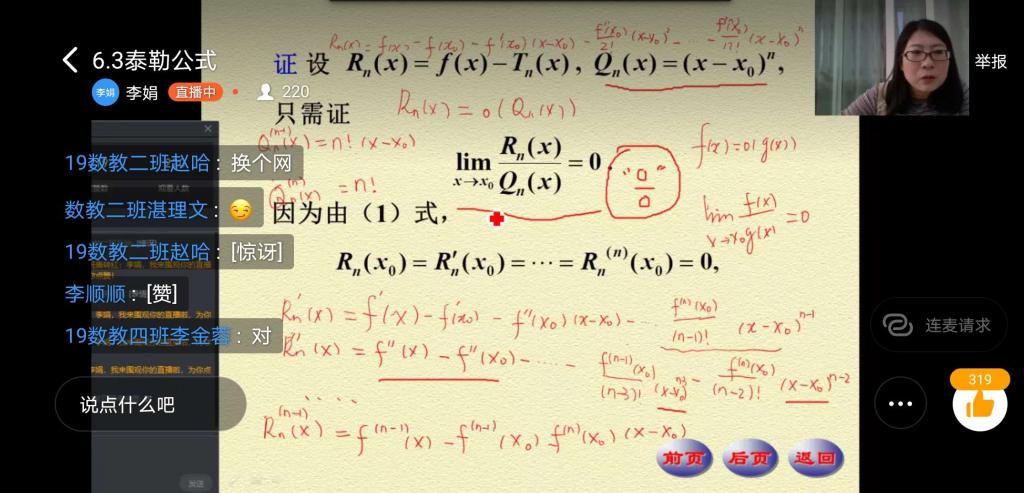 6.3泰勒公式
李娟
李娟 直播中 220
举报
R_n(x) = f(x) - f(x₀) - f'(x₀)(x-x₀) - f''(x₀)/2! (x-x₀)² - … - f⁽ⁿ⁾(x₀)/n! (x-x₀)ⁿ
证 设 Rₙ(x) = f(x) − Tₙ(x), Qₙ(x) = (x − x₀)ⁿ,
只需证
Rₙ(x) = o(Qₙ(x))
Qₙ⁽ⁿ⁻¹⁾(x) = n!(x-x₀)
Qₙ⁽ⁿ⁾(x) = n!
lim x→x₀ Rₙ(x)/Qₙ(x) = 0.
"0/0"
f(x) = o(g(x))
lim x→x₀ f(x)/g(x) = 0
因为由（1）式,
Rₙ(x₀) = R′ₙ(x₀) = ⋯ = Rₙ⁽ⁿ⁾(x₀) = 0,
Rₙ'(x) = f'(x) - f'(x₀) - f''(x₀)(x-x₀) - … f⁽ⁿ⁾(x₀)/(n-1)! (x-x₀)ⁿ⁻¹
Rₙ''(x) = f''(x) - f''(x₀) - … - f⁽ⁿ⁻¹⁾(x₀)/(n-3)! (x-x₀)ⁿ⁻³ - f⁽ⁿ⁾(x₀)/(n-2)! (x-x₀)ⁿ⁻²
....
Rₙ⁽ⁿ⁻¹⁾(x) = f⁽ⁿ⁻¹⁾(x) - f⁽ⁿ⁻¹⁾(x₀) f⁽ⁿ⁾(x₀)(x-x₀)
前页 后页 返回
19数教二班赵哈：换个网
数教二班湛理文：😏
19数教二班赵哈：[惊讶]
李顺顺：[赞]
19数教四班李金蓉：对
说点什么吧
连麦请求
319
发送